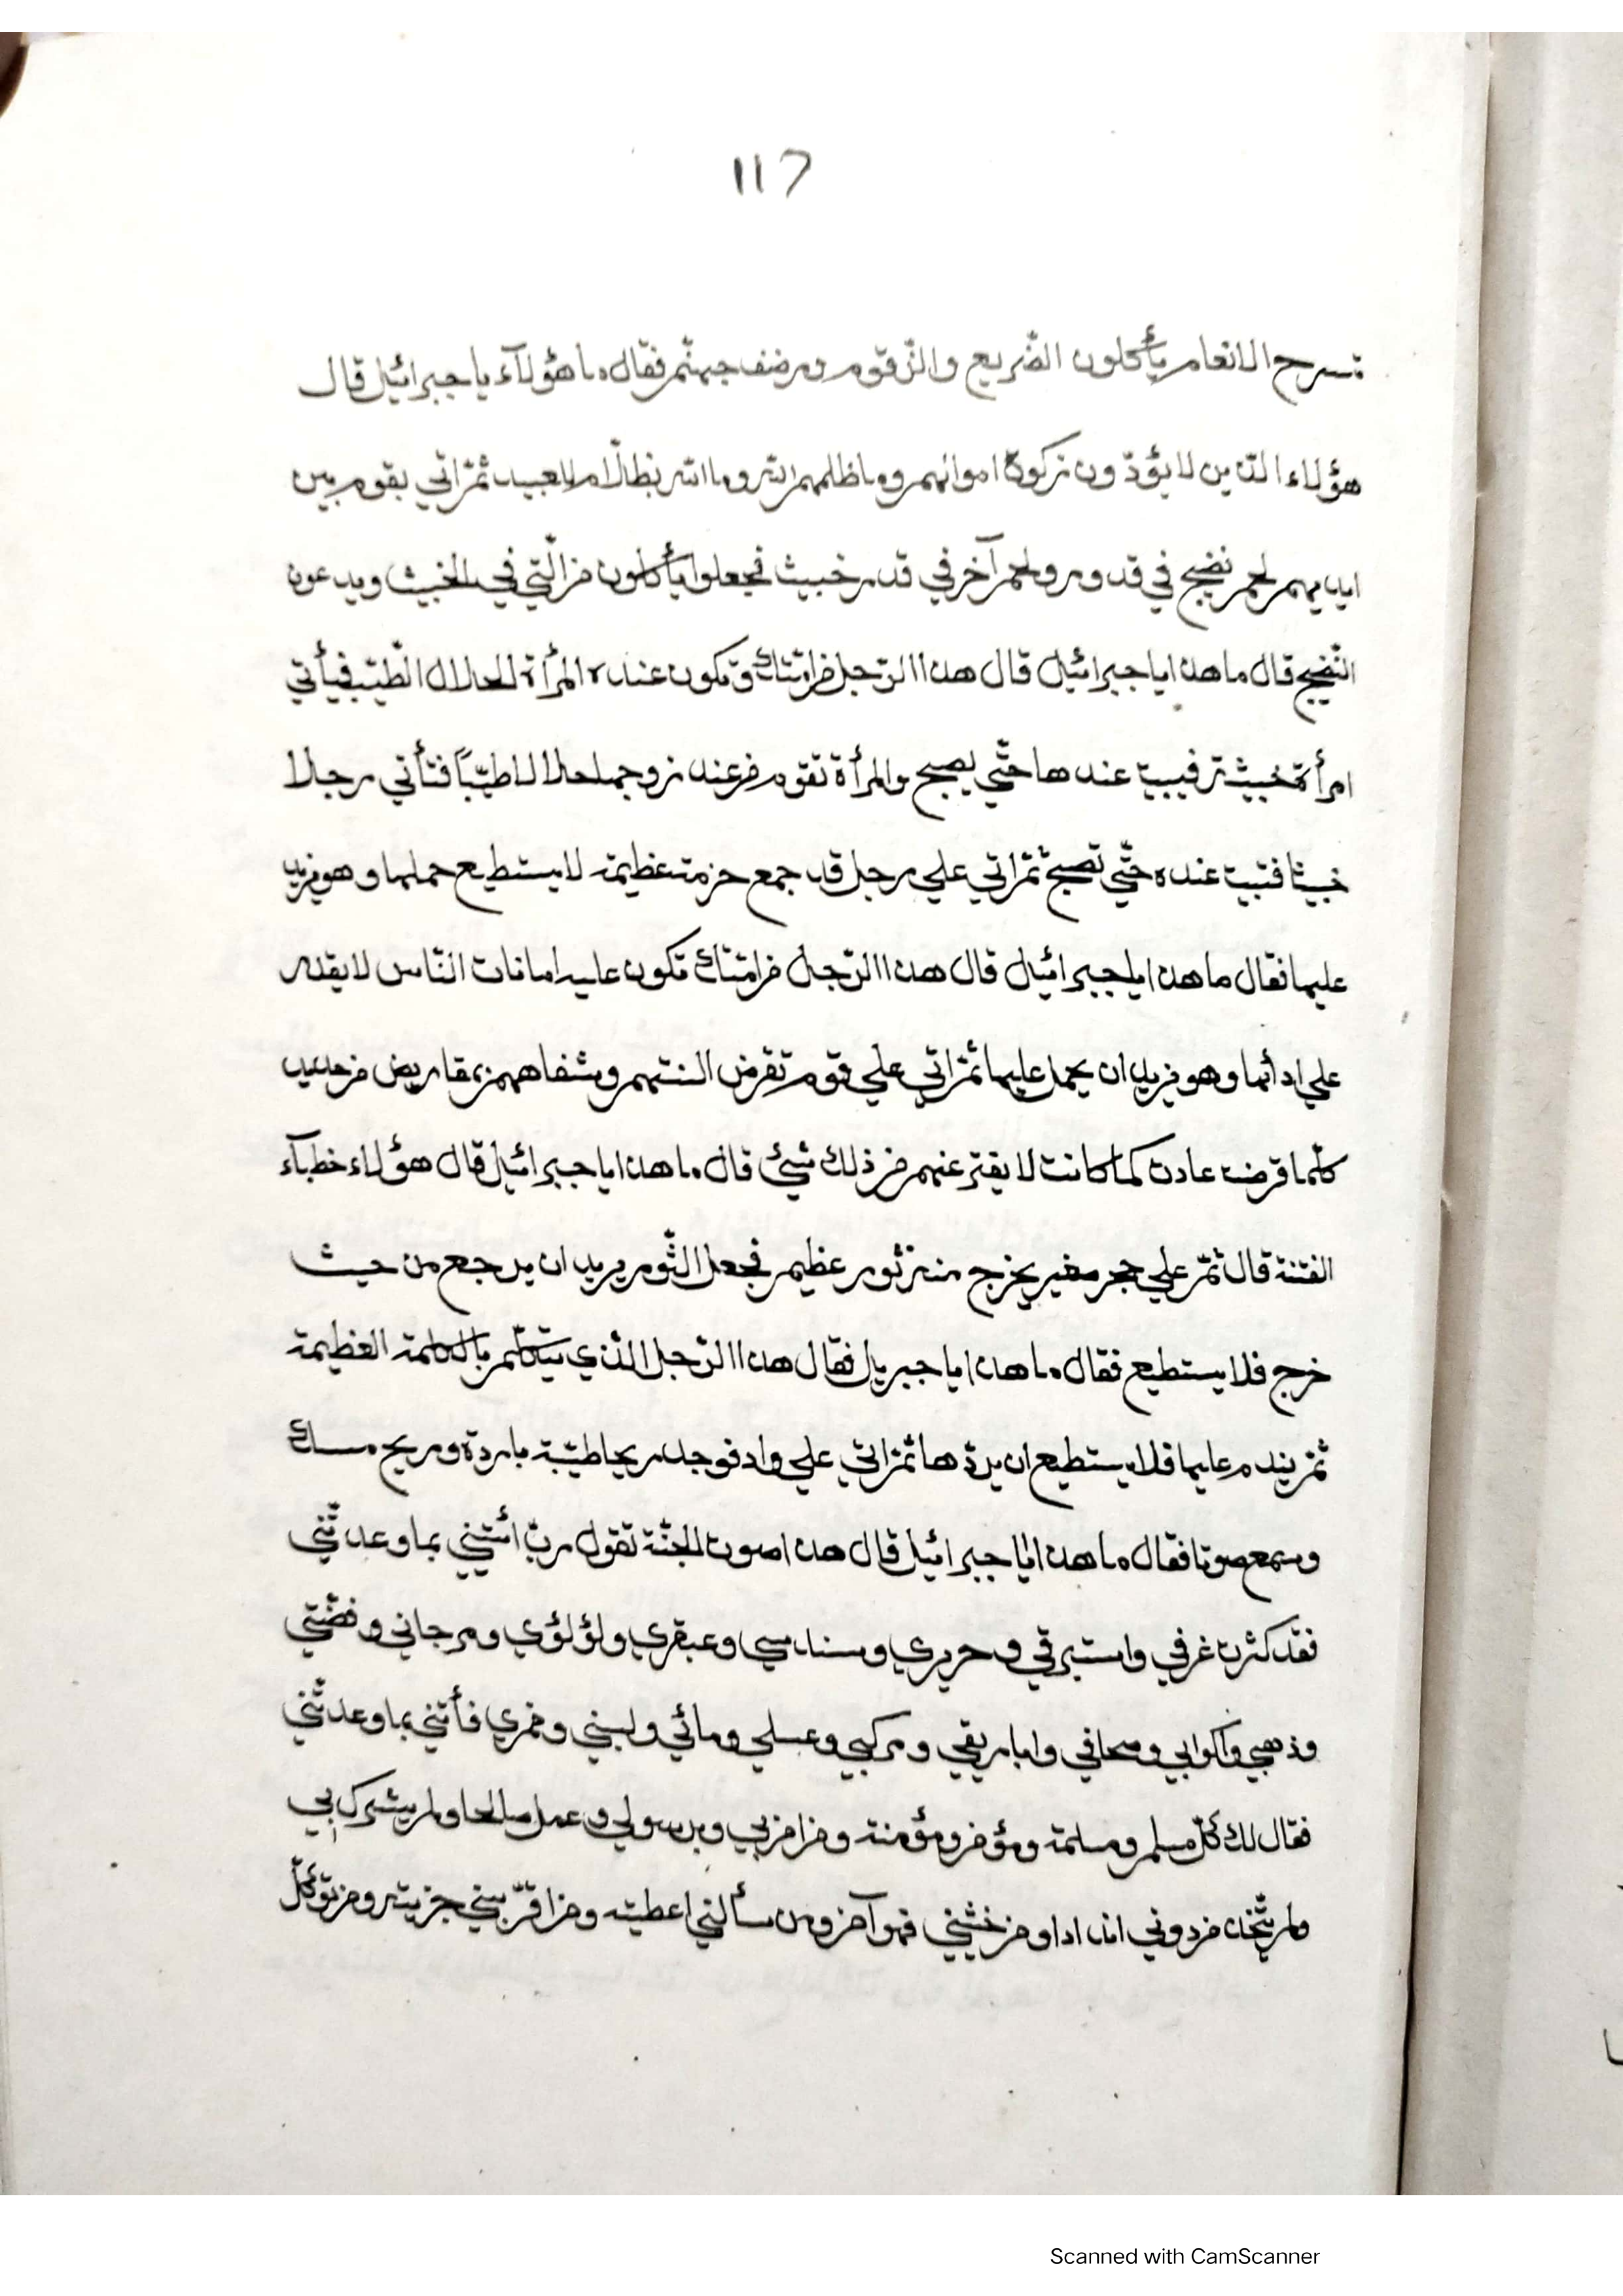 117
تسرح الانعام يأكلون الضّريع والزّقّوم ورضف جهنّم فقال ما هؤلآء يا جبرائيل قال
هؤلاء الّذين لا يؤدّون زكوة اموالهم وما ظلمهم الله وما الله بظلّام للعبيد ثمّ اتي بقوم بين
ايديهم لحم نضيج في قدور ولحم آخر في قدر خبيث فجعلوا يأكلون من الّتي في الخبيث ويدعون
النّضيج قال ما هذا يا جبرائيل قال هذا الرّجل من امّتك وتكون عنده المرأة الحلال الطّيّب فيأتي
امرأة خبيثة فيبيت عندها حتّي يصبح والمرأة تقوم من عند زوجها حلالا طيّباً فتأتي رجلا
خبيثا فتبيت عنده حتّي تصبح ثمّ اتي علي رجل قد جمع حزمة عظيمة لا يستطيع حملها وهو يزيد
عليها فقال ما هذا يا جبرائيل قال هذا الرّجل من امّتك تكون عليه امانات النّاس لا يقدر
علي ادائها وهو يزيد ان يحمل عليها ثمّ اتي علي قوم تقرض السنتهم وشفاههم بمقاريض من حديد
كلّما قرضت عادت كما كانت لا يفتر عنهم من ذلك شيئ قال ما هذا يا جبرائيل قال هؤلاء خطبآء
الفتنة قال ثمّ علي حجر صغير يخرج منه ثور عظيم فجعل الثّور يريد ان يرجع من حيث
خرج فلا يستطيع فقال ما هذا يا جبريل فقال هذا الرّجل الّذي يتكلّم بالكلمة العظيمة
ثمّ يندم عليها فلا يستطيع ان يردّها ثمّ اتي علي واد فوجد ريحا طيّبة باردة وريح مسك
وسمع صوتا فقال ما هذا يا جبرائيل قال هذا صوت الجنّة تقول ربّ ائتني بما وعدتّني
فقد كثرت غرفي واستبرقي وحريري وسندسي وعبقري ولؤلؤي ومرجاني وفضّتي
وذهبي واكوابي وصحافي واباريقي ومركبي وعسلي ومائي ولبني وخمري فأتني بما وعدتّني
فقال لك كلّ مسلم ومسلمة ومؤمن ومؤمنة ومن امن بي وبرسولي وعمل صالحا ولم يشرك بي
ولم يتّخذ من دوني اندادا ومن خشيني فهو آمن ومن سألني اعطيته ومن اقرضني جزيته ومن توكّل